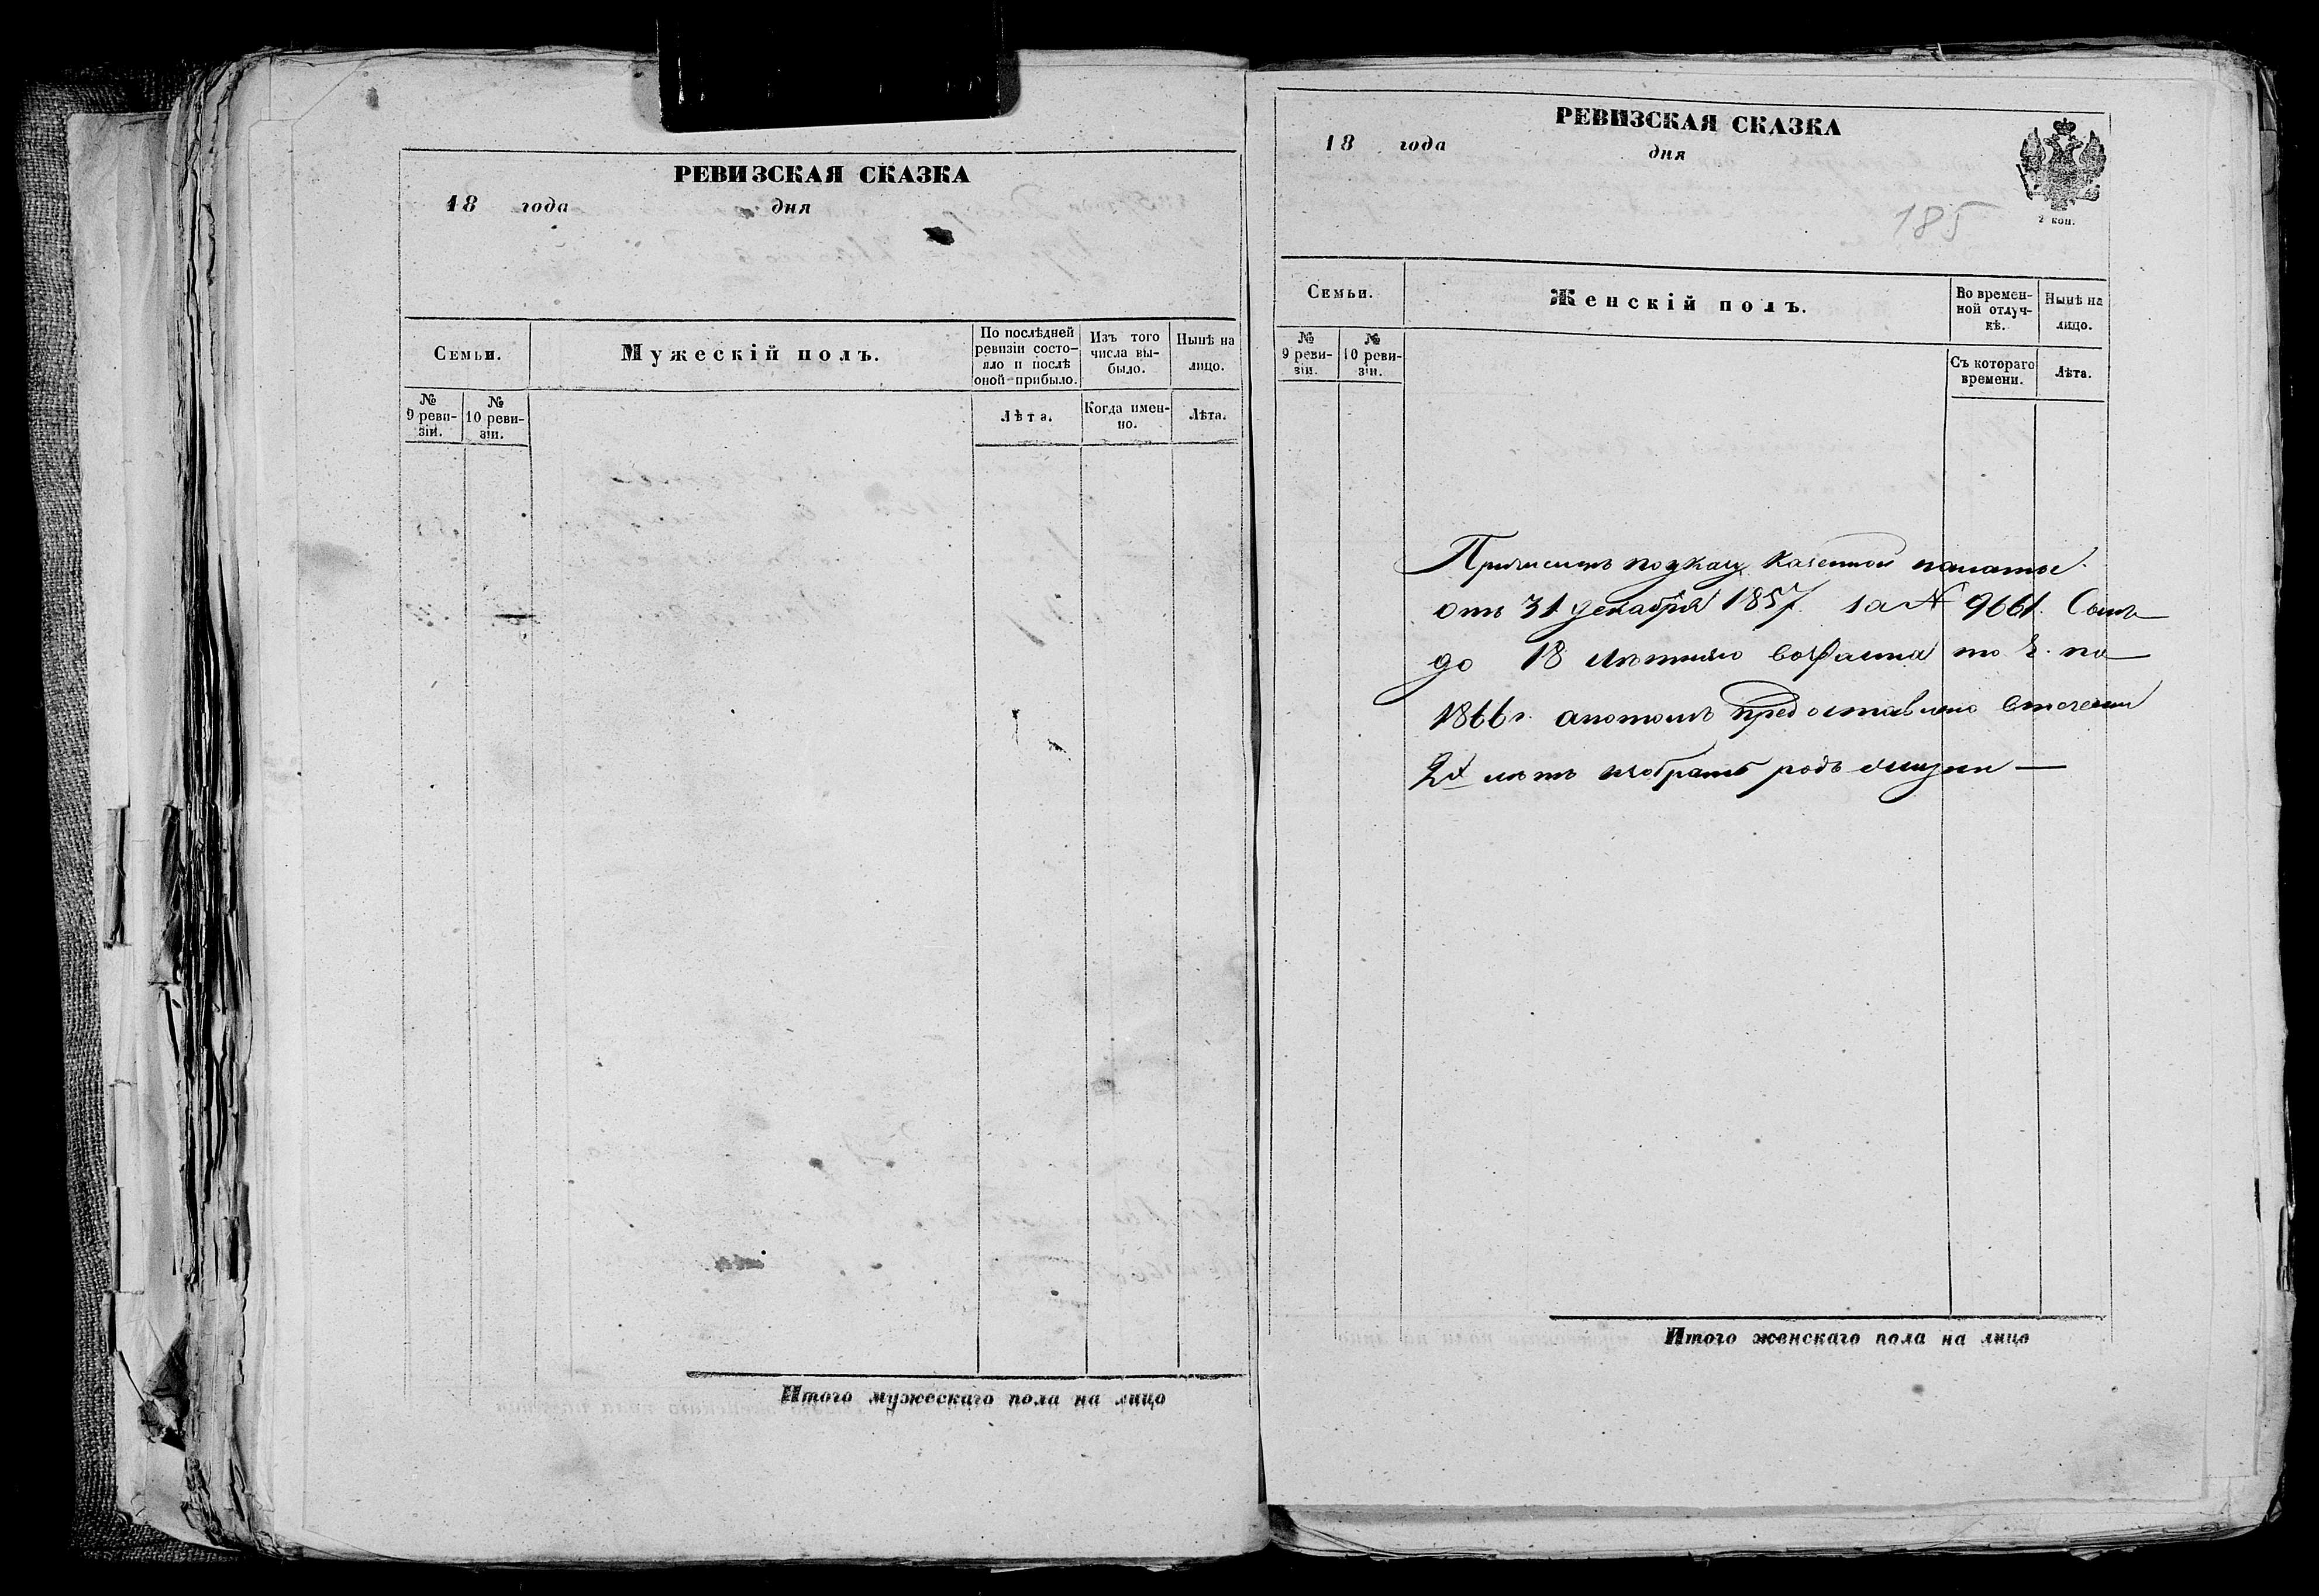 РЕВИЗСКАЯ СКАЗКА
18 года дня
Семьи.
Мужескій полъ.
По послѣдней ревизіи состо-
яло и послѣ оной прибыло.
Изъ того числа вы-
было.
Нынѣ на лицо.
№ 9 реви-
зіи.
№ 10 реви-
зіи.
Лѣта.
Когда имен-
но.
Лѣта.
Итого мужескаго пола на лицо
РЕВИЗСКАЯ СКАЗКА
18 года дня
2 коп.
185
Семьи.
Женскій полъ.
Во времен-
ной отлуч-
кѣ.
Нынѣ на лицо.
№ 9 реви-
зіи.
№ 10 реви-
зіи.
Съ котораго времени.
Лѣта.
Причисленъ по указу казенной палаты
отъ 31 декабря 1857 за № 9661.
до 18 лѣтняго возраста по
1866 г. а потомъ предоставлено втечении
2х лѣтъ избрать родъ жизни —
Итого женскаго пола на лицо